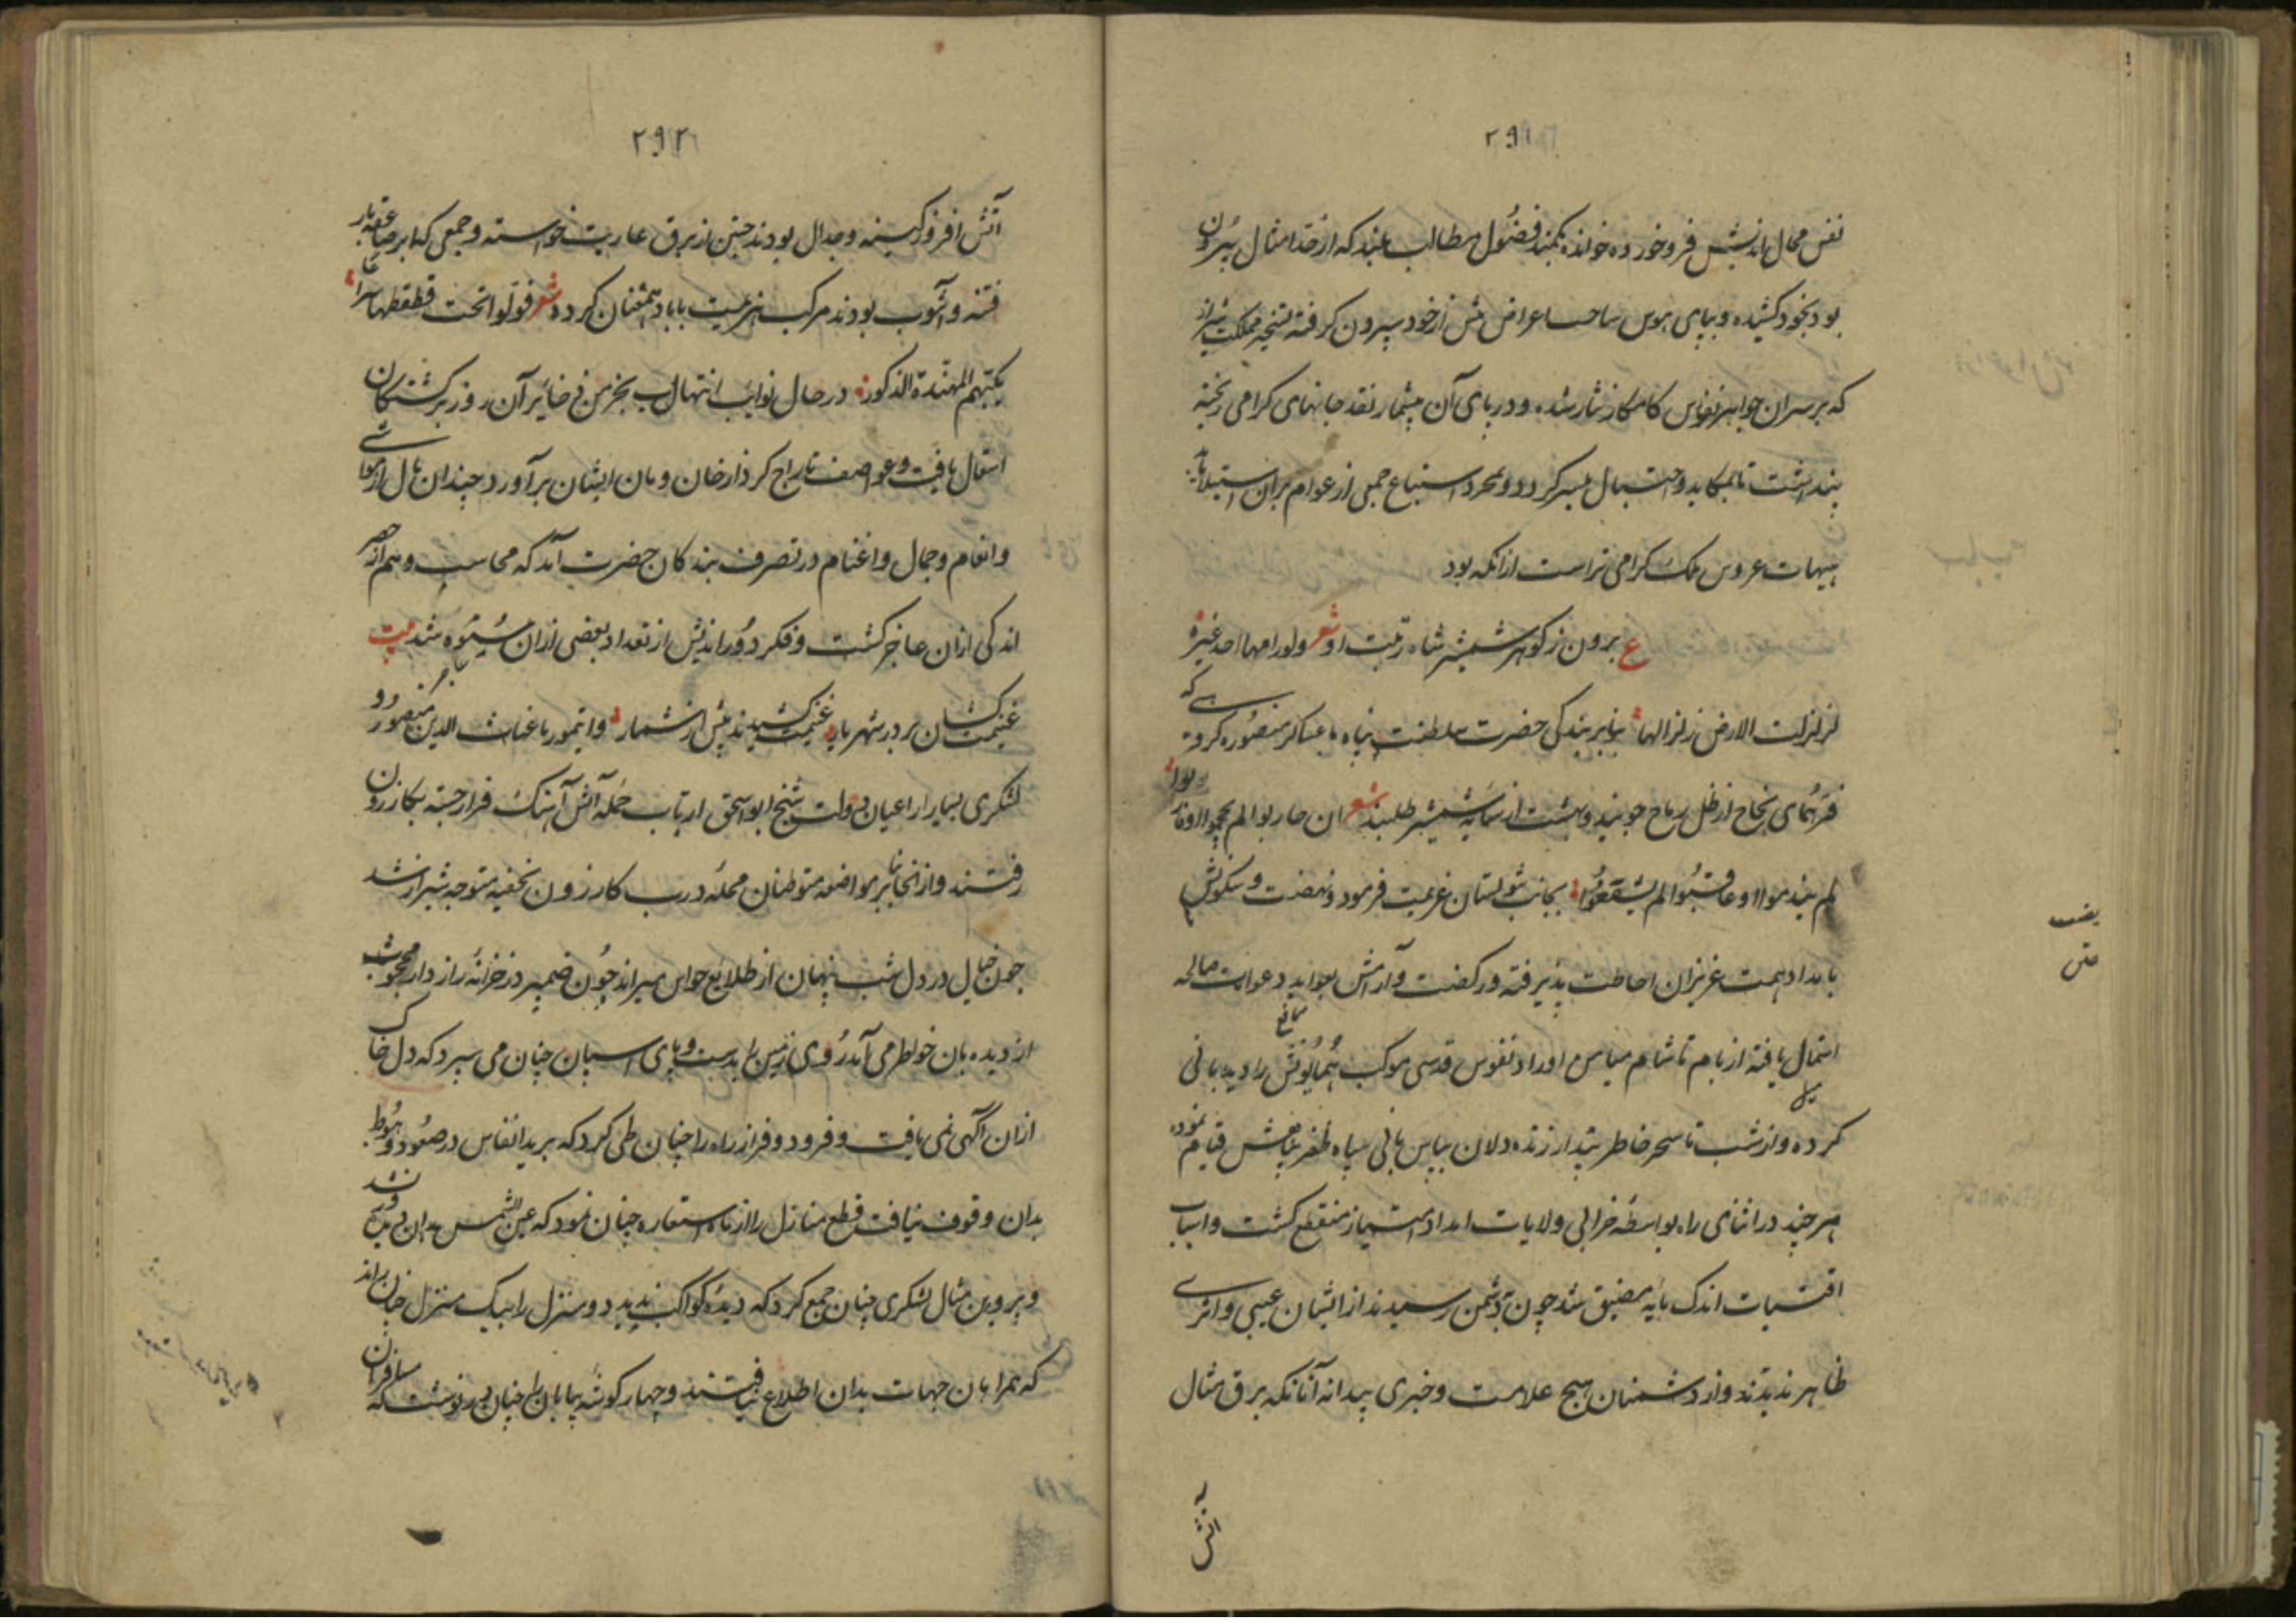 ۲۹۱
نفس محال اندیش فرو خورده خوانده بکمند فضول مطالب بلند که از حد امثال بیرون
بود بخود کشیده و بپای هوس ساحت اعراض پیش از خود بیرون کرفته تسخیر مملکت شیراز
که بر سر آن جواهر نفوس کامکار نثار شده و در پای آن بیشمار نقد جانهای کرامی ریخته
پنداشت تا بمکاید و احتیال میسر کردد و بمجرد استتباع جمعی از عوام بران استیلا یابد
هیهات عروس ملک کرامی تر است از انکه بود
ع برون ز کوهر شمشیر شاه زینت او شعر ولو رامها احد غیره
لزلزلت الارض زلزالها بنابر بندکی حضرت سلطنت پناه با عساکر منصوره کروهی که
فر همای نجاح از ظل رماح جویند و بهشت از سایه شمشیر طلبند شعر ان حاربوا لم یحجموا او قاربوا
لم یندموا او عاقبوا لم یشفعوا بجانب شولستان عزیمت فرمود و نهضت و سکونش
بامداد همت عزیزان احاطت پذیرفته و رکضت و آرامش بعواید دعوات صالحه
اشتمال یافته از بام تا شام میامن اوراد نفوس قدسی موکب همایونش را دیدبانی
کرده و از شب تا سحر خاطر بیدار زنده دلان بپاس بانی سپاه ظفر پناهش قیام نموده
هر چند در اثنای راه بواسطه خرابی ولایات امداد امتیاز منقطع کشت و اسباب
اقتیات اندک مایه مضیق شد چون بدشمن رسیدند از ایشان عینی و اثری
ظاهر ندیدند و از دشمنان هیچ علامت و خبری پیدا نه آنانکه برق مثال
آتش
۲۹۲
آتش افروز کینه و جدال بودند جستن از برق عاریت خواسته و جمعی که ابر صاعقه بار
فتنه و آشوب بودند مرکب هزیمت با باد همعنان کردد شعر فولوا تحت قطقطها سراعا
یکبهم المهندة الذکور در حال نوایب انتهاب بخرمن ذخایر آن روز برکشتکان
اشتعال یافت و عواصف تاراج کرد از خان و مان ایشان برآورد چندان مال از مواشی
و انعام و جمال و اغنام در تصرف بندکان حضرت آمد که محاسب وهم از حصر
اندکی ازان عاجز کشت و فکر دوراندیش از تعداد بعضی ازان ستوه شد بیت
غنیمت کشان بر در شهریار غنیمت کشیدند بیش از شمار و ایتمور با غیاث الدین منصور و
لشکری بسیار از اعیان دولت شیخ ابو اسحق از تاب حمله آتش آهنک فرار جسته بکازرون
رفتند و از انجا بنابر مواضعه متوطنان محله درب کازرون بخفیه متوجه شیراز شد
چون خیال در دل شب پنهان از طلایع حواس میراند چون ضمیر در خزانه راز دار محجوب
از دیده بان خواطر می آمد روی زمین را بدست و پای اسپان چنان می سپرد که دل خاک
ازان آکهی نمی یافت و فرود و فراز راه را چنان طی کرد که برید انفاس در صعود و هبوط
بدان وقوف نیافت قطع منازل را از ماه استعاره چنان نمود که عین الشمس بدان پی نبرد
و پروین مثال لشکری چنان جمع کرد که دیده کواکب ندید و دو منزل را بیک منزل چنان راند
که همراهان جهات بدان اطلاع نیافتند و چهار کوشه بیابان را چنان پی در نوشت که مسافران